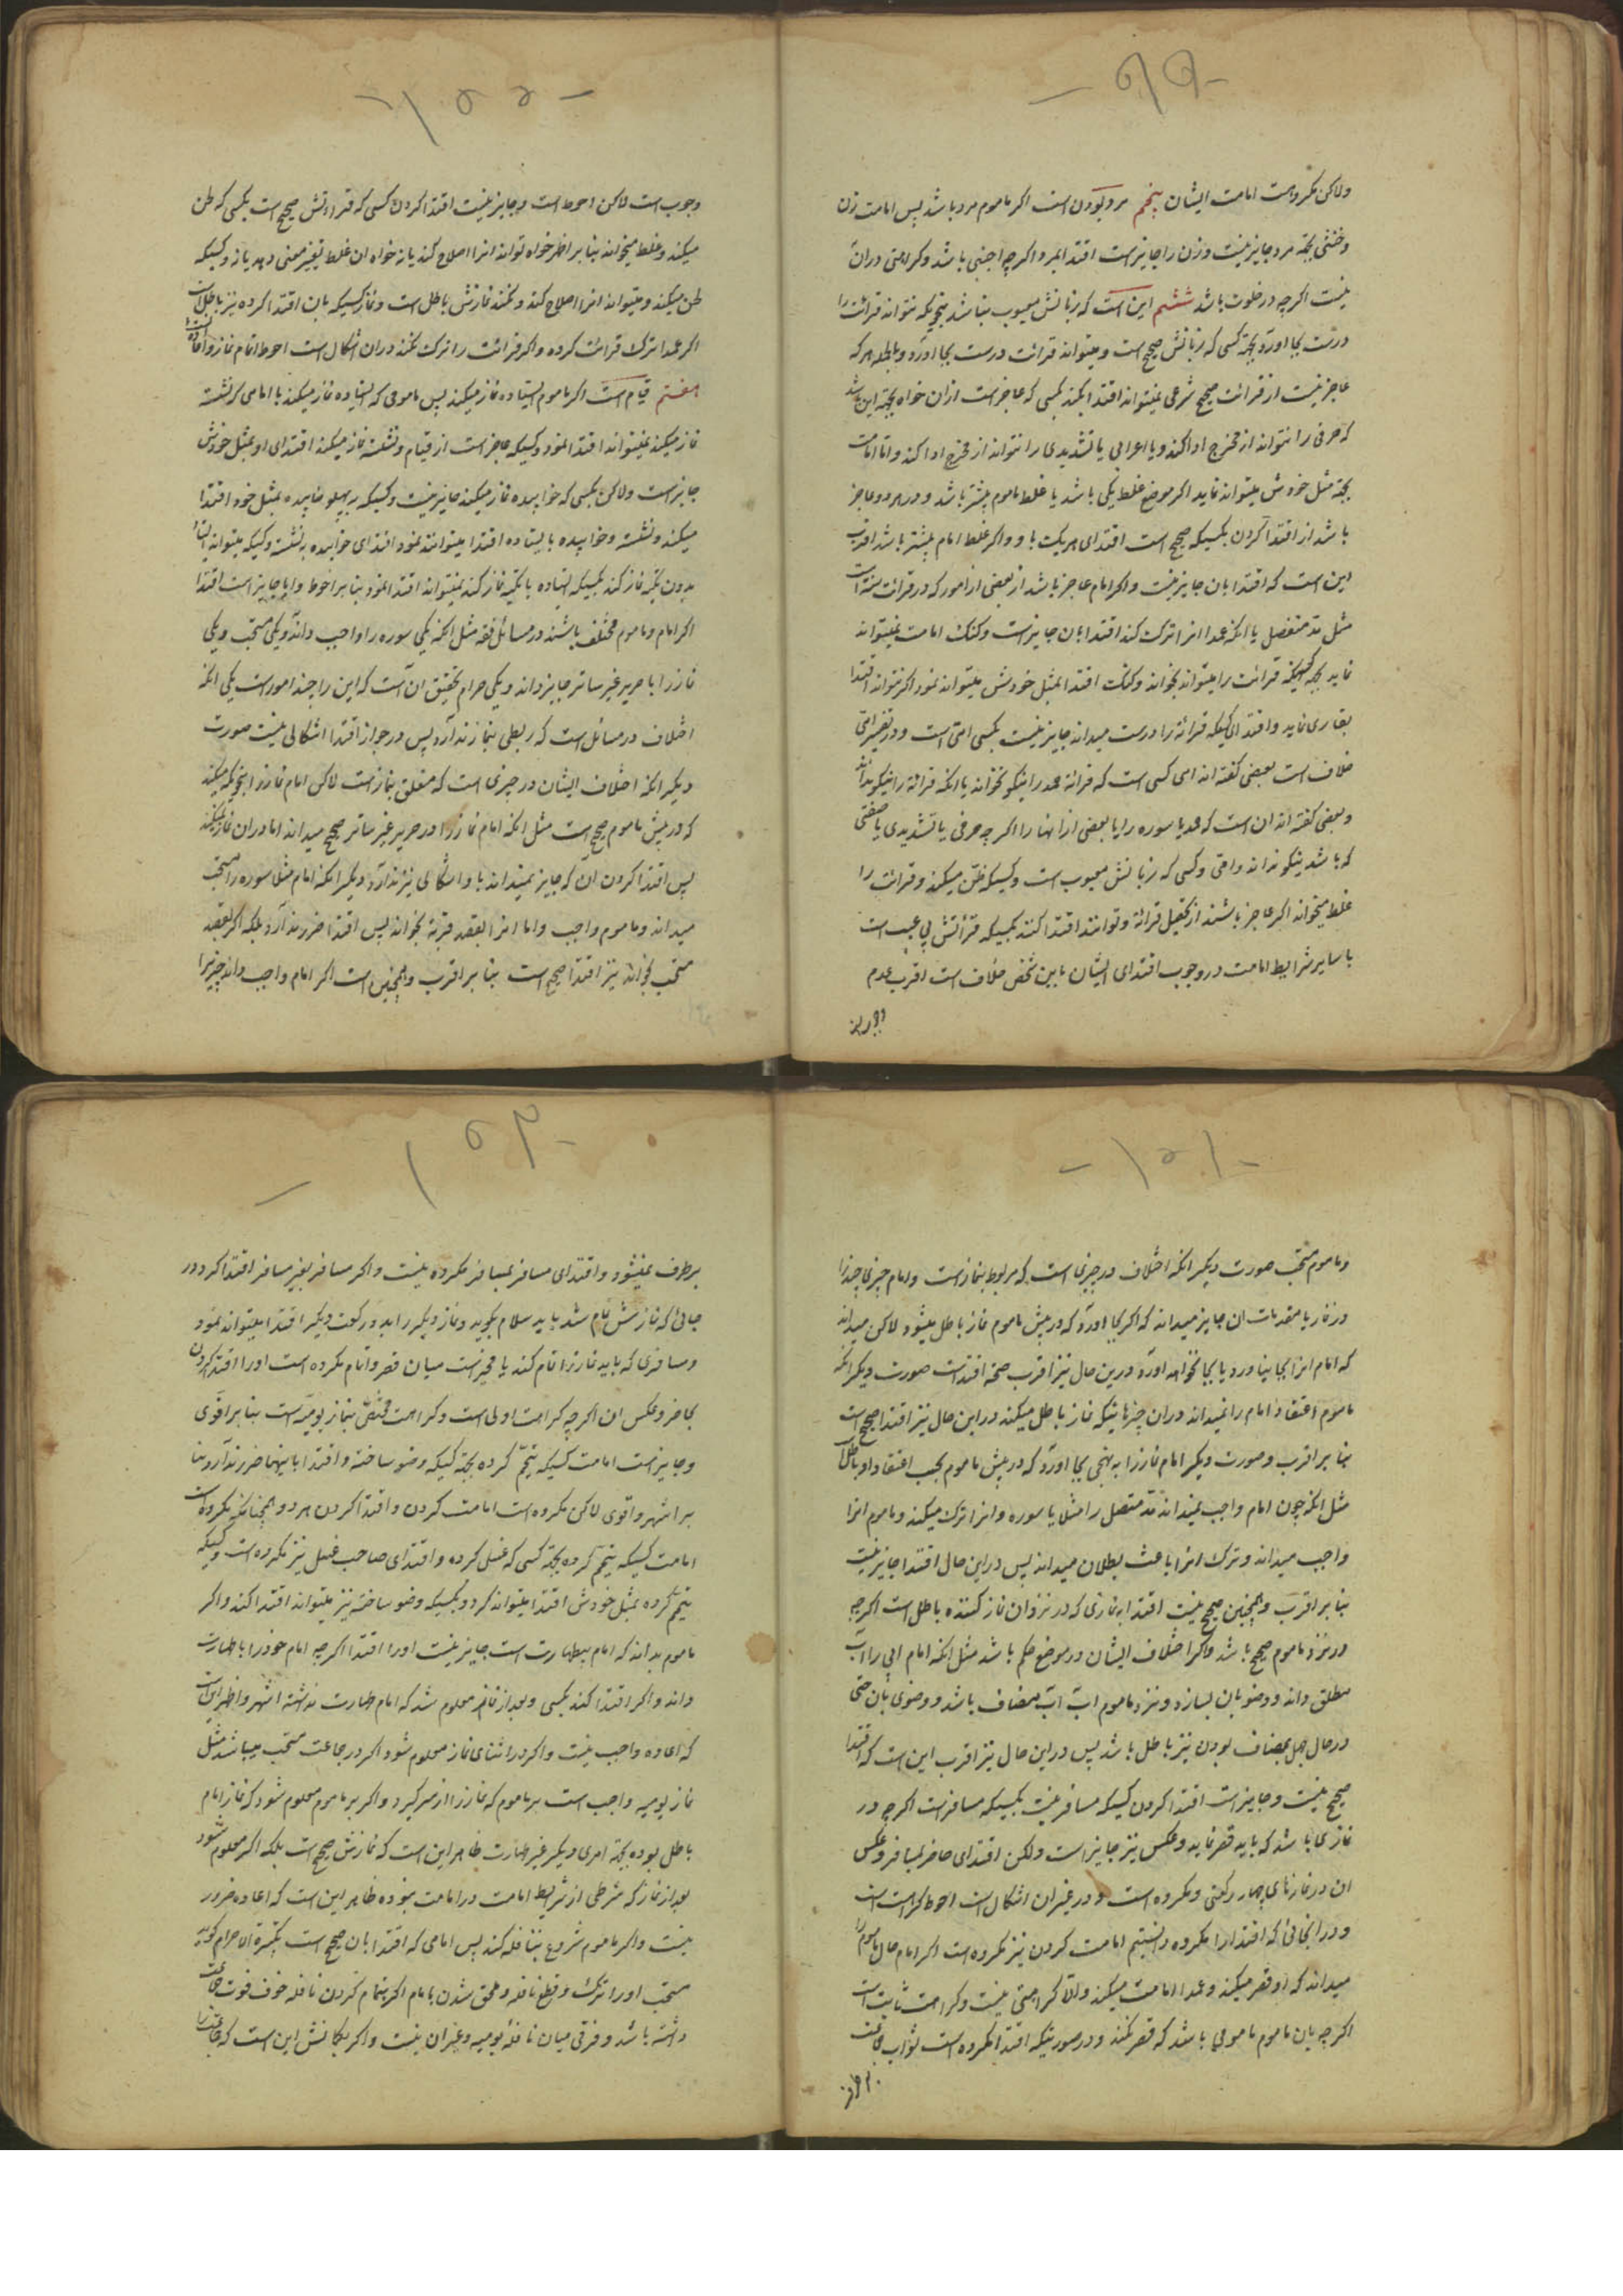 ولاکن مکروهست امامت ایشان پنجم مرد بودن است اکر ماموم مرد باشد پس امامت زن
وخنثی بجهة مرد جایز نیست وزن را جایز است اقتدا بمرد اکرچه اجنبی باشد وکراهتی دران
نیست اکرچه در خلوت باشد ششم این است که زبانش معیوب نباشد بنحویکه نتواند قرائت را
درست بجا اورد بجهة کسی که زبانش صحیح است ومیتواند قرائت درست بجا اورد وبالجمله هر که
عاجز نیست از قرائت صحیح شرعی نمیتواند اقتدا بکند بکسی که عاجز است ازان خواه بجهة این باشد
که حرفی را نتواند از مخرج ادا کند ویا اعرابی یا تشدیدی را نتواند از مخرج ادا کند واما امامت
بجهة مثل خودش میتواند نماید اکر موضع غلط یکی باشد یا غلط ماموم بیشتر باشد ودر هر دو عاجز
باشد از اقتدا کردن بکسیکه صحیح است اقتدای هر یک باو واکر غلط امام بیشتر باشد اقرب
این است که اقتدا بان جایز نیست واکر امام عاجز باشد از بعضی از امور که در قرائت سنة است
مثل مد منفصل یا انکه عمدا انرا ترک کند اقتدا بان جایز است وکنک امامت نمیتواند
نماید بجهة کسیکه قرائت را میتواند بخواند وکنک اقتدا بمثل خودش میتواند نمود اکر نتواند اقتدا
بقاری نماید واقتدای کسیکه قرائة را درست میداند جایز نیست بکسی امی است ودر تفسیر امی
خلاف است بعضی کفته اند امی کسی است که قرائة حمد را نیکو نخواند یا انکه قرائة را نیکو نداند
وبعضی کفته اند ان است که حمد یا سوره را یا بعضی از انها را اکرچه حرفی یا تشدیدی یا صفتی
که باشد نیکو نداند وامی وکسی که زبانش معیوب است وکسیکه لحن میکند وقرائت را
غلط میخواند اکر عاجز باشند از تحصیل قرائة وتوانند اقتدا کنند بکسیکه قرائتش بی عیب است
با سایر شرایط امامت در وجوب اقتدای ایشان باین شخص خلاف است اقرب عدم
وجوب است لاکن احوط است وجایز نیست اقتدا کردن کسی که قرائتش صحیح است بکسی که لحن
میکند وغلط میخواند بنا بر اظهر خواه تواند انرا اصلاح کند یا نه خواه ان غلط تغییر معنی دهد یا نه وکسیکه
لحن میکند ومیتواند انرا اصلاح کند ونکند نمازش باطل است ونماز کسیکه بان اقتدا کرده نیز باطل است
اکر عمدا ترک قرائت کرده واکر قرائت را ترک نکند دران اشکال است احوط اتمام نماز واعاده است
هفتم قیام است اکر ماموم ایستاده نماز میکند پس مامومی که ایستاده نماز میکند با امامی که نشسته
نماز میکند نمیتواند اقتدا نمود وکسیکه عاجز است از قیام ونشسته نماز میکند اقتدای او بمثل خودش
جایز است ولاکن بکسی که خوابیده نماز میکند جایز نیست وکسیکه بر پهلو خوابیده بمثل خود اقتدا
میکند ونشسته وخوابیده بایستاده اقتدا میتوانند نمود واقتدای خوابیده به نشسته وکسیکه میتواند ایستاده
بدون تکیه نماز کند بکسیکه ایستاده با تکیه نماز کند نمیتواند اقتدا نمود بنا بر احوط وایا جایز است اقتدا
اکر امام وماموم مختلف باشند در مسائل فقه مثل انکه یکی سوره را واجب داند ویکی مستحب ویکی
نماز را با حریر غیر ساتر جایز داند ویکی حرام تحقیق ان است که این را چند امور است یکی انکه
اختلاف در مسائل است که ربطی بنماز ندارد پس در جواز اقتدا اشکالی نیست صورت
دیکر انکه اختلاف ایشان در چیزی است که متعلق بنماز است لاکن امام نماز را بنحویکه میکند
که در پیش ماموم صحیح است مثل انکه امام نماز را در حریر غیر ساتر صحیح میداند اما دران نماز نمیکند
پس اقتدا کردن ان که جایز نمیداند باو اشکالی نیز ندارد ودیکر انکه امام مثلا سوره را مستحب
میداند وماموم واجب واما انرا بقصد قربة بخواند پس اقتدا ضرر ندارد بلکه اکر بقصد
مستحب بخواند نیز اقتدا صحیح است بنا بر اقرب وهمچنین است اکر امام واجب داند چیزیرا
وماموم مستحب صورت دیکر انکه اختلاف در چیزی است که مربوط بنماز است وامام چیزی چند را
در نماز یا مقدمات ان جایز میداند که اکر بجا اورد که در پیش ماموم نماز باطل میشود لاکن میداند
که امام انرا بجا نیاورد یا بجا نخواهد اورد درین حال نیز اقرب صحة اقتدا است صورت دیکر انکه
ماموم اعتقاد امام را نمیداند دران چیزهائیکه نماز باطل میکند دراین حال نیز اقتدا صحیح است
بنا بر اقرب وصورت دیکر امام نماز را به نهجی بجا اورد که در پیش ماموم بحسب اعتقاد او باطل است
مثل انکه چون امام واجب نمیداند مد متصل را مثلا یا سوره وانرا ترک میکند وماموم انرا
واجب میداند وترک انرا باعث بطلان میداند پس دراین حال اقتدا جایز نیست
بنا بر اقرب وهمچنین صحیح نیست اقتدا به نمازی که در نزد ان نماز کننده باطل است اکرچه
در نزد ماموم صحیح باشد واکر اختلاف ایشان در موضع حکم باشد مثل انکه امام ابی را اب
مطلق داند ووضو بان بسازد ونزد ماموم اب اب مضاف باشد ووضوی بان حتی
در حال جهل بمضاف بودن نیز باطل باشد پس دراین حال نیز اقرب این است که اقتدا
صحیح نیست وجایز است اقتدا کردن کسیکه مسافر نیست بکسیکه مسافر است اکرچه در
نمازی باشد که باید قصر نماید وعکس نیز جایز است ولکن اقتدای حاضر بمسافر وعکس
ان در نمازهای چهار رکعتی مکروه است ودر غیر ان اشکال است احوط کراهت است
ودر انجائی که اقتدا را مکروه دانستیم امامت کردن نیز مکروه است اکر امام حال ماموم را
میداند که او قصر میکند وعمدا امامت میکند والا کراهتی نیست وکراهت ثابت است
اکرچه بان ماموم مامومی باشد که قصر نکند ودر صورتیکه اقتدا مکروه است ثواب جماعت
برطرف نمیشود واقتدای مسافر بمسافر مکروه نیست واکر مسافر بغیر مسافر اقتدا کرد در
جائی که نمازش تمام شد باید سلام بکوید ونماز دیکر را بدو رکعت دیکر اقتدا میتواند نمود
ومسافری که باید نماز را تمام کند یا مخیر است میان قصر واتمام مکروه است اورا اقتدا کردن
بحاضر وعکس ان اکرچه کراهت اولی است وکراهت مختص بنماز یومیه است بنا بر اقوی
وجایز است امامت کسیکه تیمم کرده بجهة کسیکه وضو ساخته واقتدا باینها ضرر ندارد بنا
بر اشهر واقوی لاکن مکروه است امامت کردن واقتدا کردن هر دو همچنانکه مکروه است
امامت کسیکه تیمم کرده بجهة کسی که غسل کرده واقتدای صاحب غسل نیز مکروه است وکسیکه
تیمم کرده بمثل خودش اقتدا میتواند کرد وبکسیکه وضو ساخته نیز میتواند اقتدا کند واکر
ماموم بداند که امام بیطهارت است جایز نیست اورا اقتدا اکرچه امام خود را با طهارت
داند واکر اقتدا کند بکسی وبعد از نماز معلوم شد که امام طهارت نداشته اشهر واظهر ان است
که اعاده واجب نیست واکر در اثنای نماز معلوم شود اکر در جماعت مستحب میباشد مثل
نماز یومیه واجب است بر ماموم که نماز را از سر کیرد واکر بر ماموم معلوم شود که نماز امام
باطل بوده بجهة امری دیکر غیر طهارت ظاهر این است که نمازش صحیح است بلکه اکر معلوم شود
بعد از نماز که شرطی از شرایط امامت در امامت نبوده ظاهر این است که اعاده ضرور
نیست واکر ماموم شروع بنافله کند پس امامی که اقتدا بان صحیح است تکبیرة الاحرام کوید
مستحب اورا ترک وقطع نافله وملحق شدن بامام اکر بتمام کردن نافله خوف فوت جماعت
داشته باشد وفرقی میان نافله یومیه وغیر ان نیست واکر بکمانش این است که جماعت را